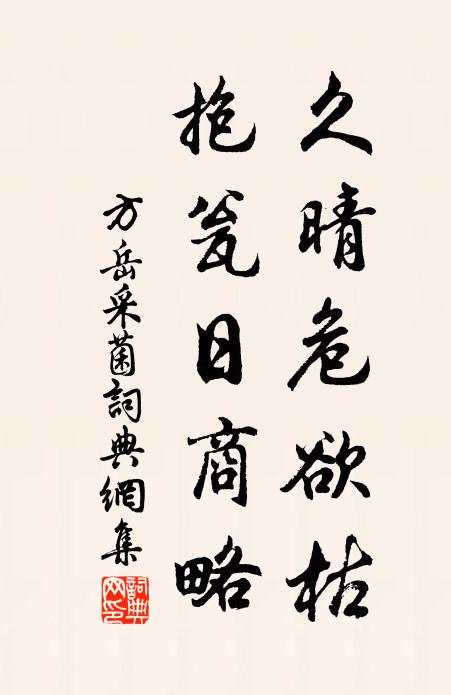 久晴危欲枯
抱瓮日商略
方岳采菌詞典網集
詞典網印